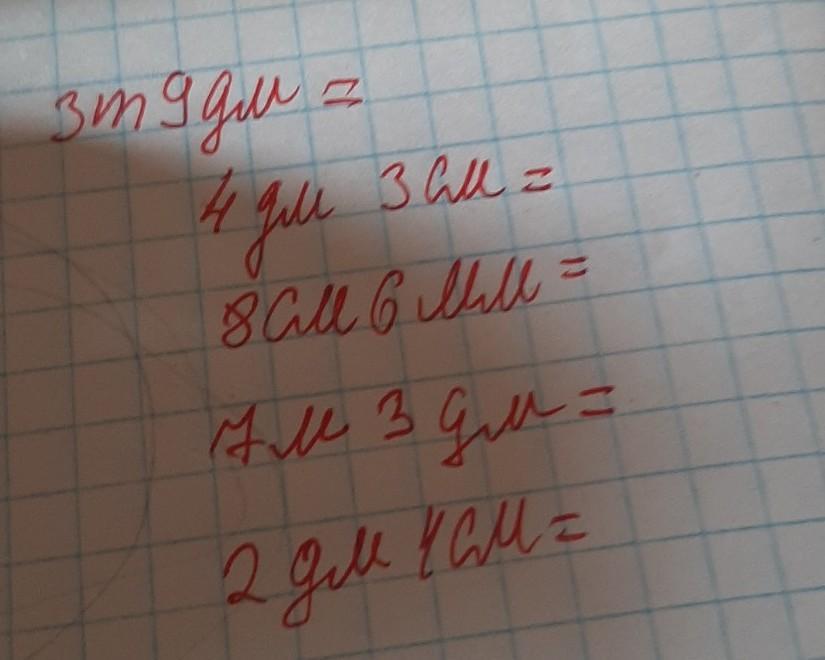 3m 9 дм =
4 дм 3 см =
8 см 6 мм =
7 м 3 дм =
2 дм 4 см =